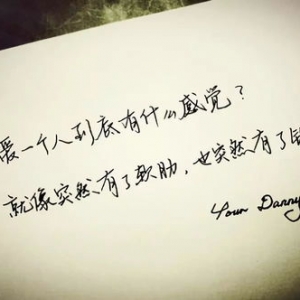 爱一个人到底有什么感觉?
就像突然有了软肋,也突然有了
Your Danny